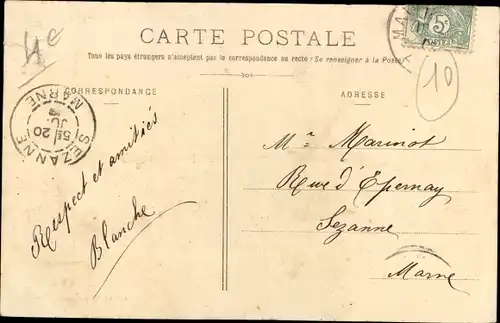 4e
CARTE POSTALE
Tous les pays étrangers n'acceptent pas la correspondance au recto (Se renseigner à la Poste)
CORRESPONDANCE
ADRESSE
5c
10
SEZANNE
5E 20
MARNE
Respect et amitiés
Blanche
Mr Marinot
Rue d'Epernay
Sezanne
Marne